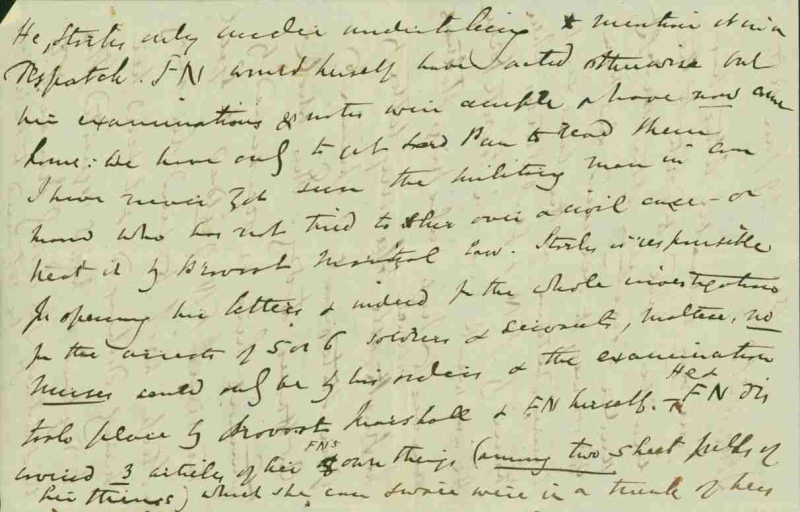 He, Storks only under undertaking to mention it in a
Despatch. FN would herself have acted otherwise but
her examinations & notes were ample & have now come
home: we have only to get Lord Pan to read them
I have never yet seen the military man in com
mand who has not tried to over a civil case - or
treat it by Provost Marshal law. Storks is responsible
for opening her letters & indeed for the whole investigation
for the arrests of 5 or 6 soldiers & servants, Maltese, no
Nurses could only be by his orders & the examination
took place by Provost Marshall & FN herself. He & FN dis
covered 3 articles of her FNs own things (among two sheet fulls of
her things) which she can swear were in a trunk of hers